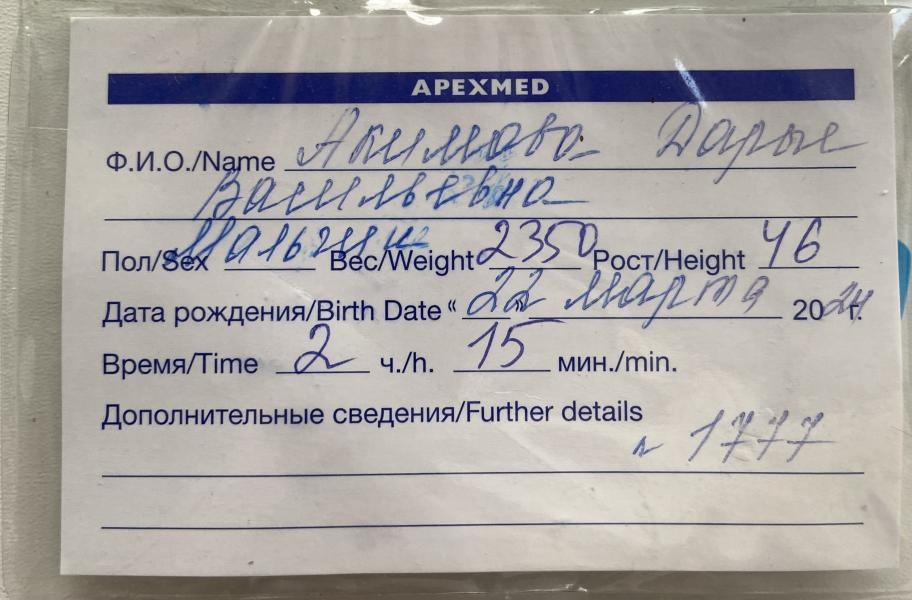 APEXMED
Ф.И.О./Name Акимова Дарья
Васильевна
Пол/Sex Мальчик Вес/Weight 2350 Рост/Height 46
Дата рождения/Birth Date “ 22 ” марта 2024г.
Время/Time 2 ч./h. 15 мин./min.
Дополнительные сведения/Further details
1777